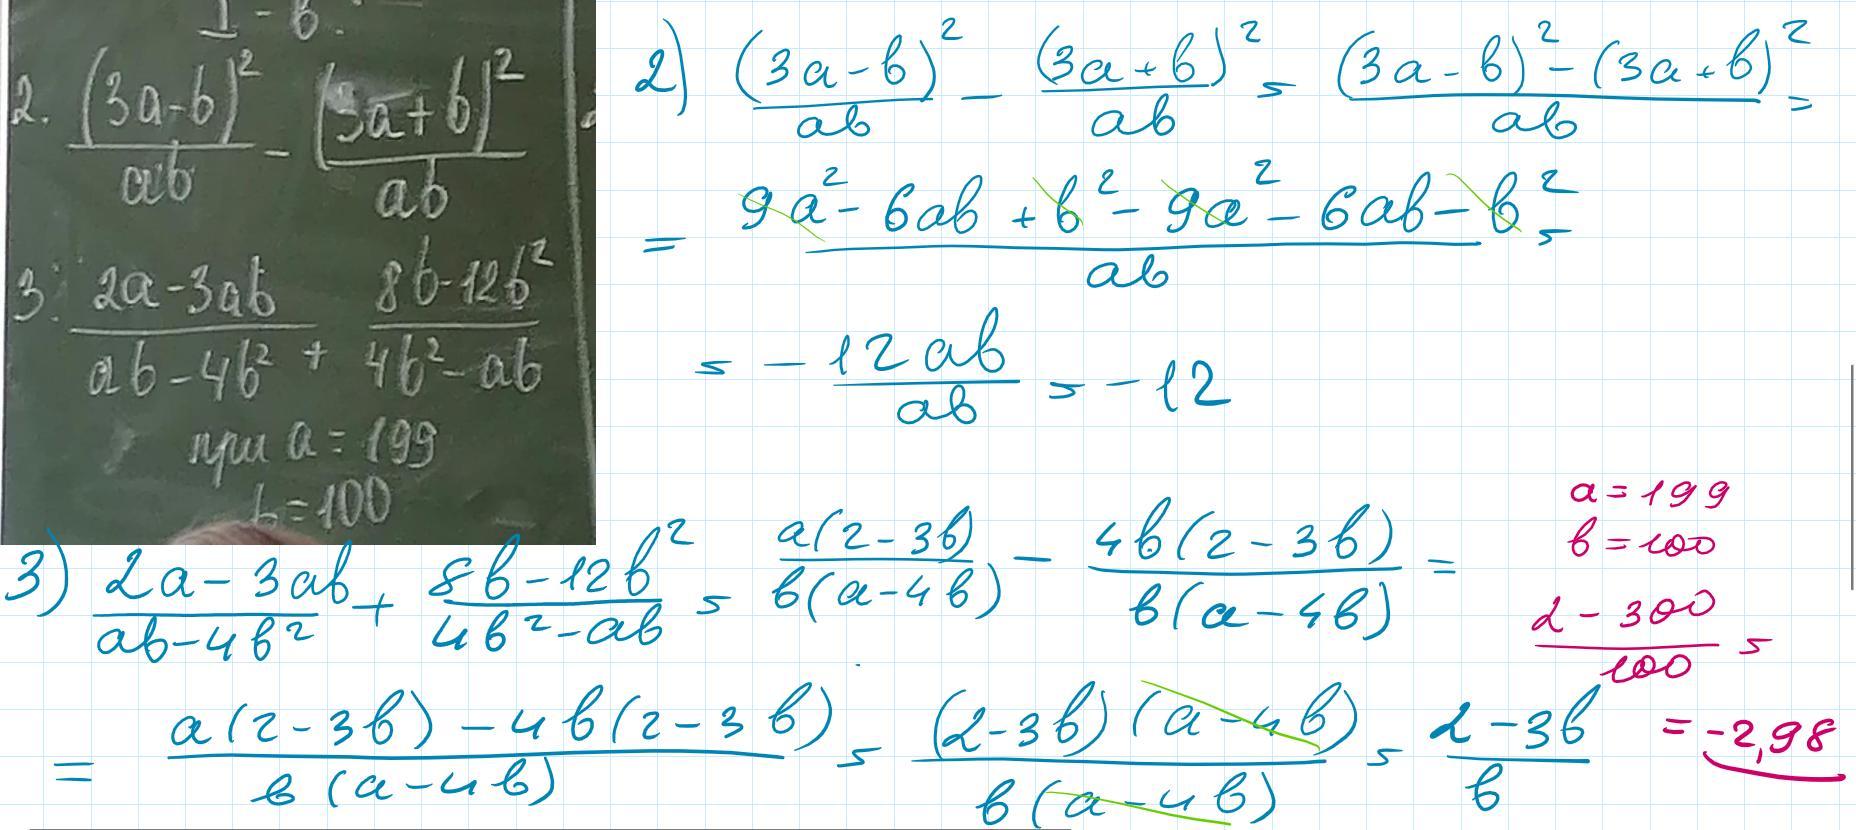 I - в.
2. (3a-b)²/ab - (3a+b)²/ab
3. (2a-3ab)/(ab-4b²) + (8b-12b²)/(4b²-ab)
при a = 199
b = 100
2) (3a-b)²/ab - (3a+b)²/ab = ((3a-b)² - (3a+b)²)/ab =
= (9a² - 6ab + b² - 9a² - 6ab - b²)/ab =
= - 12ab/ab = -12
3) (2a-3ab)/(ab-4b²) + (8b-12b²)/(4b²-ab) = a(2-3b)/b(a-4b) - 4b(2-3b)/b(a-4b) =
= (a(2-3b) - 4b(2-3b))/b(a-4b) = (2-3b)(a-4b)/b(a-4b) = (2-3b)/b
a = 199
b = 100
(2 - 300)/100 =
= -2,98